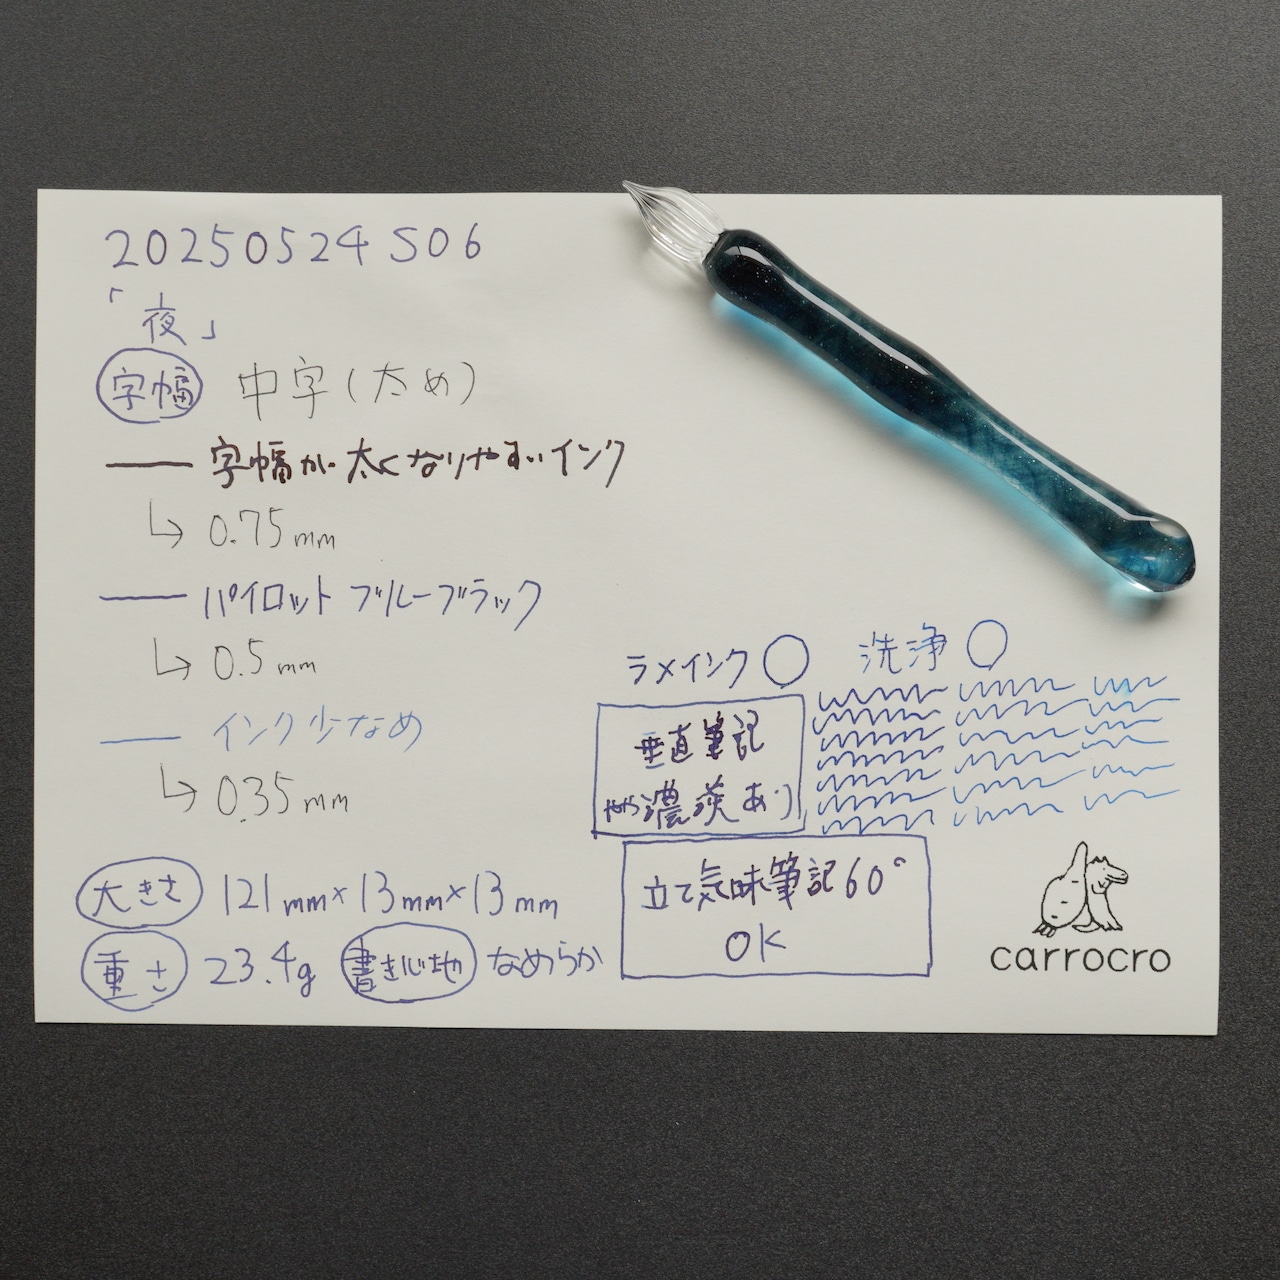 20250524 S06
「夜」
字幅 中字(太め)
字幅が太くなりやすいインク
0.75mm
パイロット ブルーブラック
0.5mm
インク少なめ
0.35mm
大きさ 121mm×13mm×13mm
重さ 23.4g 書き心地 なめらか
ラメインク ○ 洗浄 ○
垂直筆記
やや濃淡あり
立て気味筆記60°
OK
carrocro